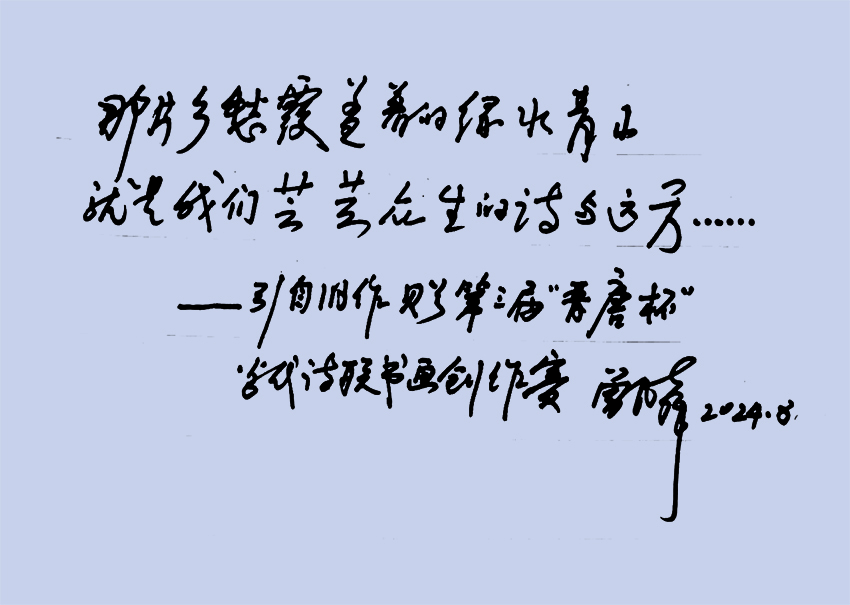 那片乡愁覆盖着的绿水青山
就是我们芸芸众生的诗与远方……
——引自旧作 贻第三届“晋唐杯”
当代诗联书画创作赛 2024.8.